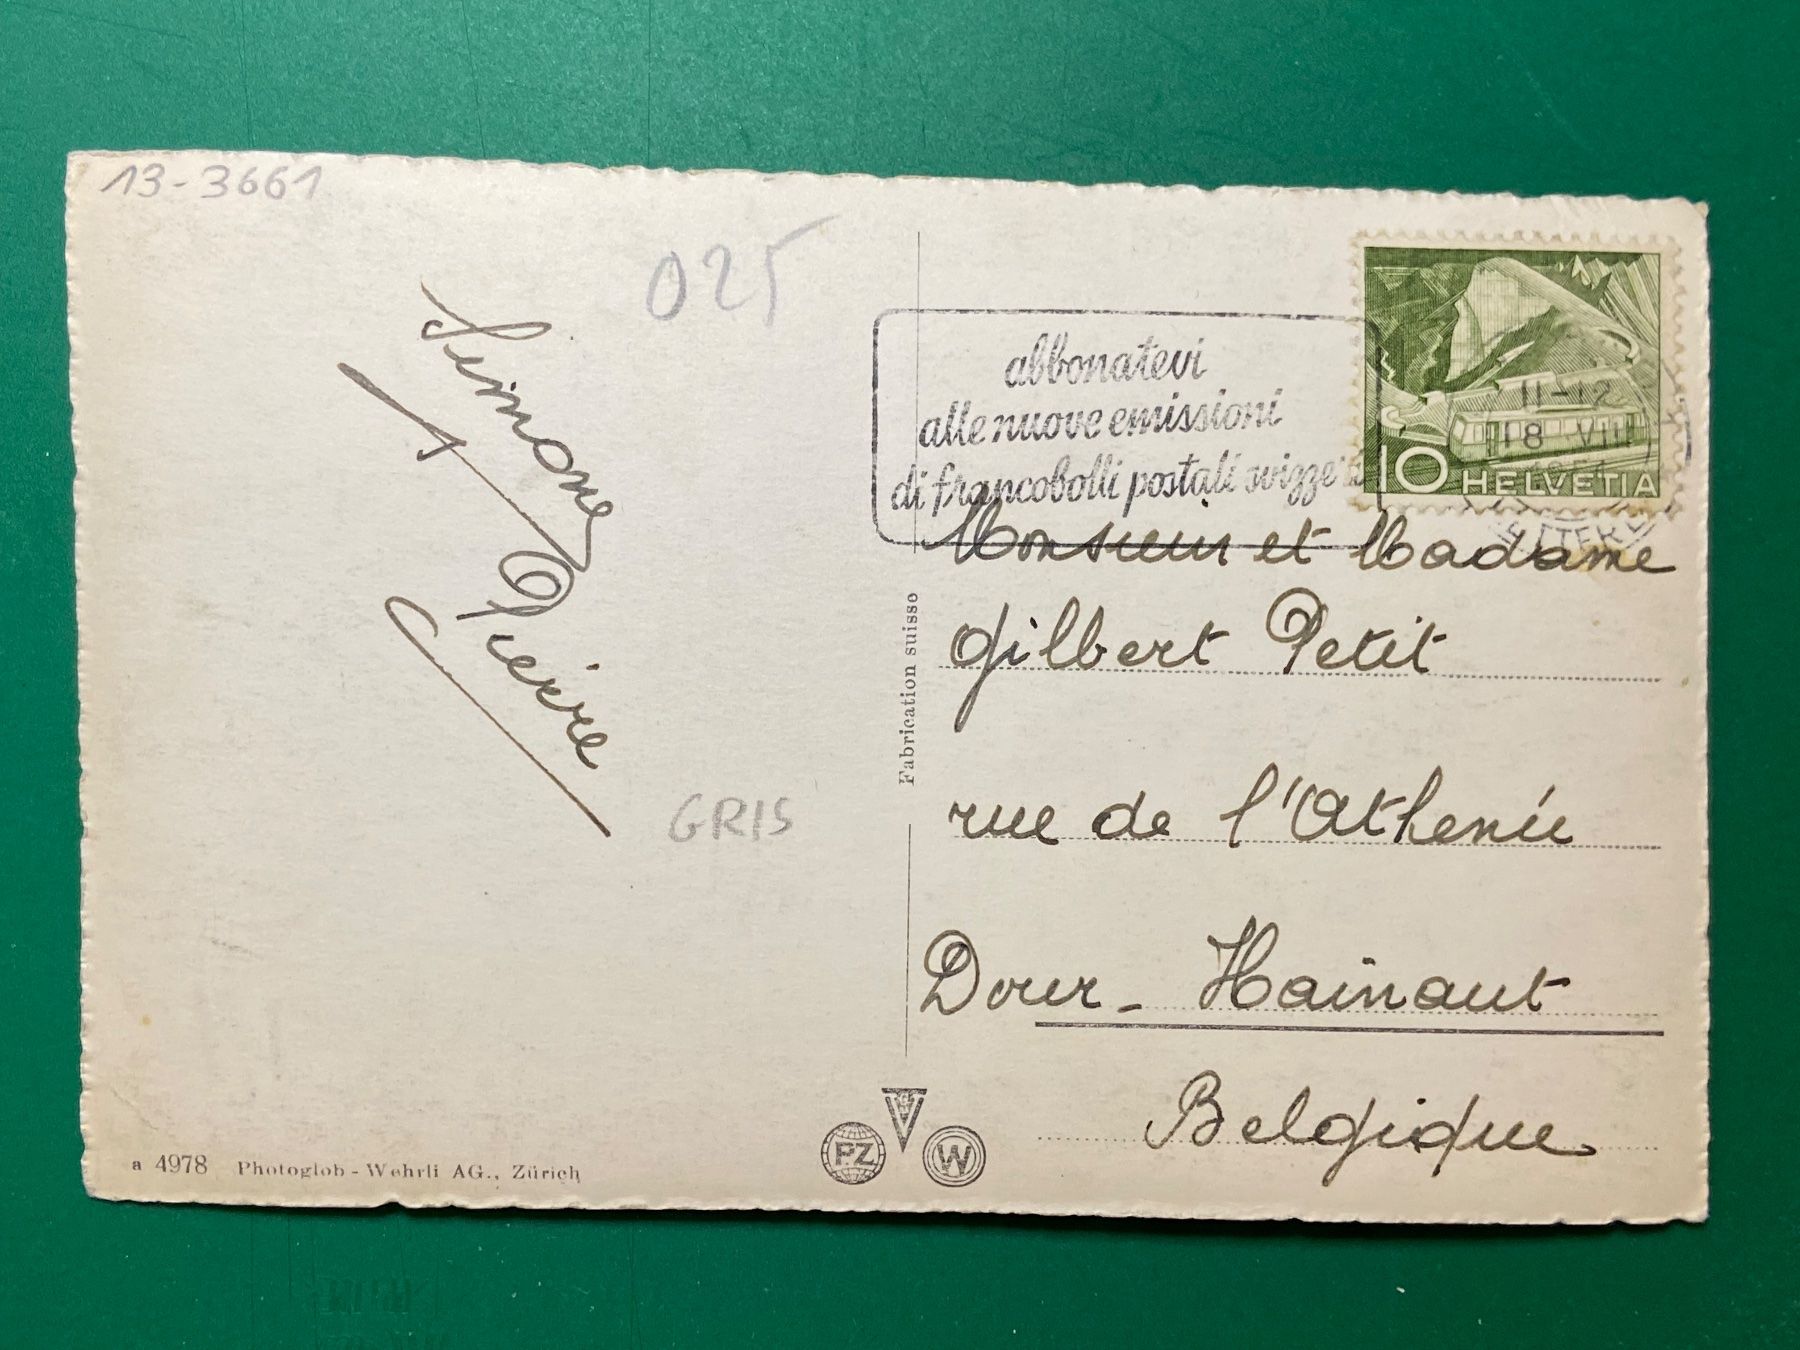 13-3661
025
Simone
Pierre
GRIS
a 4978 Photoglob - Wehrli AG., Zürich
Fabrication suisse
PZ
W
abbonatevi
alle nuove emissioni
di francobolli postali svizzeri
11-12
18 VIII
10 HELVETIA
Monsieur et Madame
Gilbert Petit
rue de l'Athénée
Dour - Hainaut
Belgique